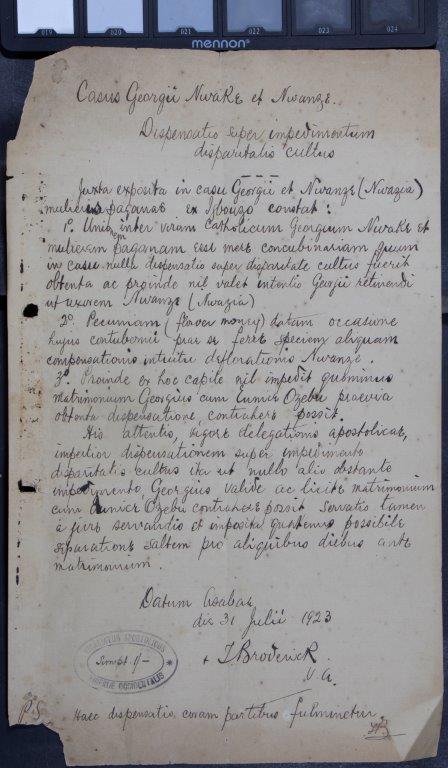 019 020 021 022 023 024
mennon
Casus Georgii Nwake et Nwanze.
Dispensatio super impedimentum
disparitatis cultus
Juxta exposita in casu Georgii et Nwanze (Nwazia)
mulieris paganae ex Igbouzo constat :
1º. Unio inter virum Catholicum Georgium Nwake et
mulierem paganam esse mere concubinariam quum
in casu nulla dispensatio super disparitate cultus fuerit
obtenta ac proinde nil valet intentio Georgii retinendi
ut uxorem Nwanze (Nwazia)
2º Pecuniam (flower money) datam occasione
hujus contubernii prae se ferre speciem aliquam
compensationis intuitu deflorationis Nwanze.
3º. Proinde ex hoc capite nil impedit quominus
matrimonium Georgius cum Eunice Ozebu praevia
obtenta dispensatione, contrahere possit.
His attentis, vigore delegationis apostolicae,
impertior dispensationem super impedimento
disparitatis cultus ita ut nullo alio obstante
impedimento, Georgius valide ac licite matrimonium
cum Eunice Ozebu contrahere possit servatis tamen
a jure servandis et imposita quatenus possibile
separatione saltem pro aliquibus diebus ante
matrimonium.
Datum Asabae
die 31 Julii 1923
+ J Broderick
V. A.
APOSTOLICUS
Simpt. 1/-
NIGERIAE OCCIDENTALIS
P.S
Haec dispensatio coram partibus fulminetur